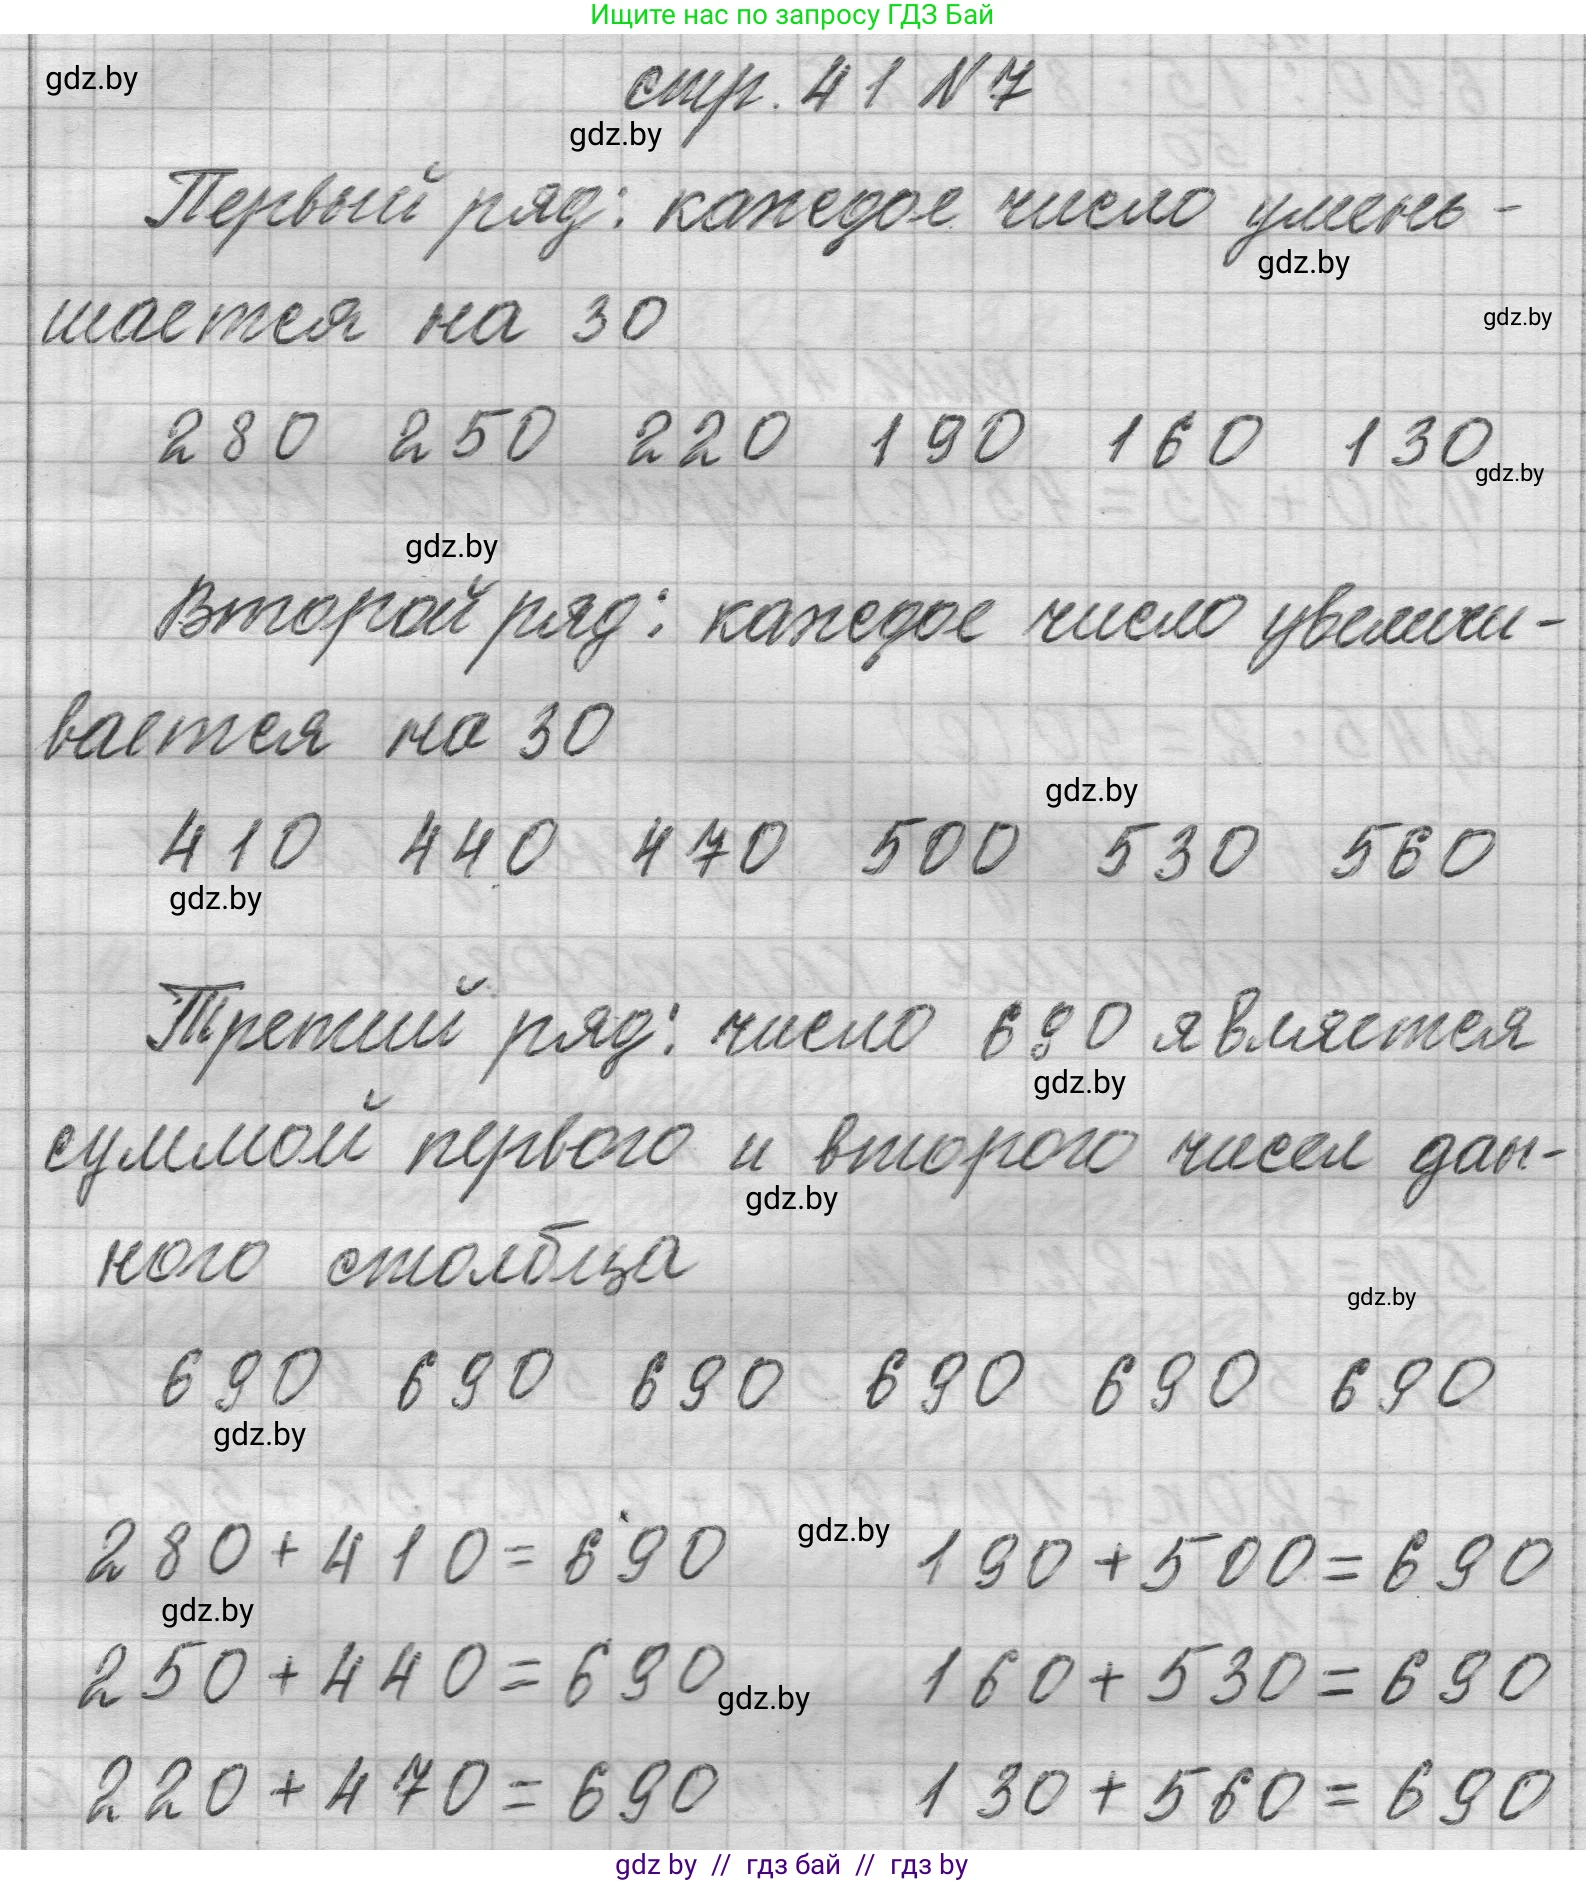 Ищите нас по запросу ГДЗ Бай
gdz.by
стр. 41 N 7
gdz.by
Первый ряд: каждое число умень-
gdz.by
шается на 30
gdz.by
280 250 220 190 160 130
gdz.by
gdz.by
Второй ряд: каждое число увеличи-
вается на 30
gdz.by
410 440 470 500 530 560
gdz.by
Третий ряд: число 690 является
gdz.by
суммой первого и второго чисел дан-
gdz.by
ного столбца
gdz.by
690 690 690 690 690 690
gdz.by
280 + 410 = 690 gdz.by 190 + 500 = 690
gdz.by
250 + 440 = 690 gdz.by 160 + 530 = 690
220 + 470 = 690 130 + 560 = 690
gdz by // гдз бай // gdz by